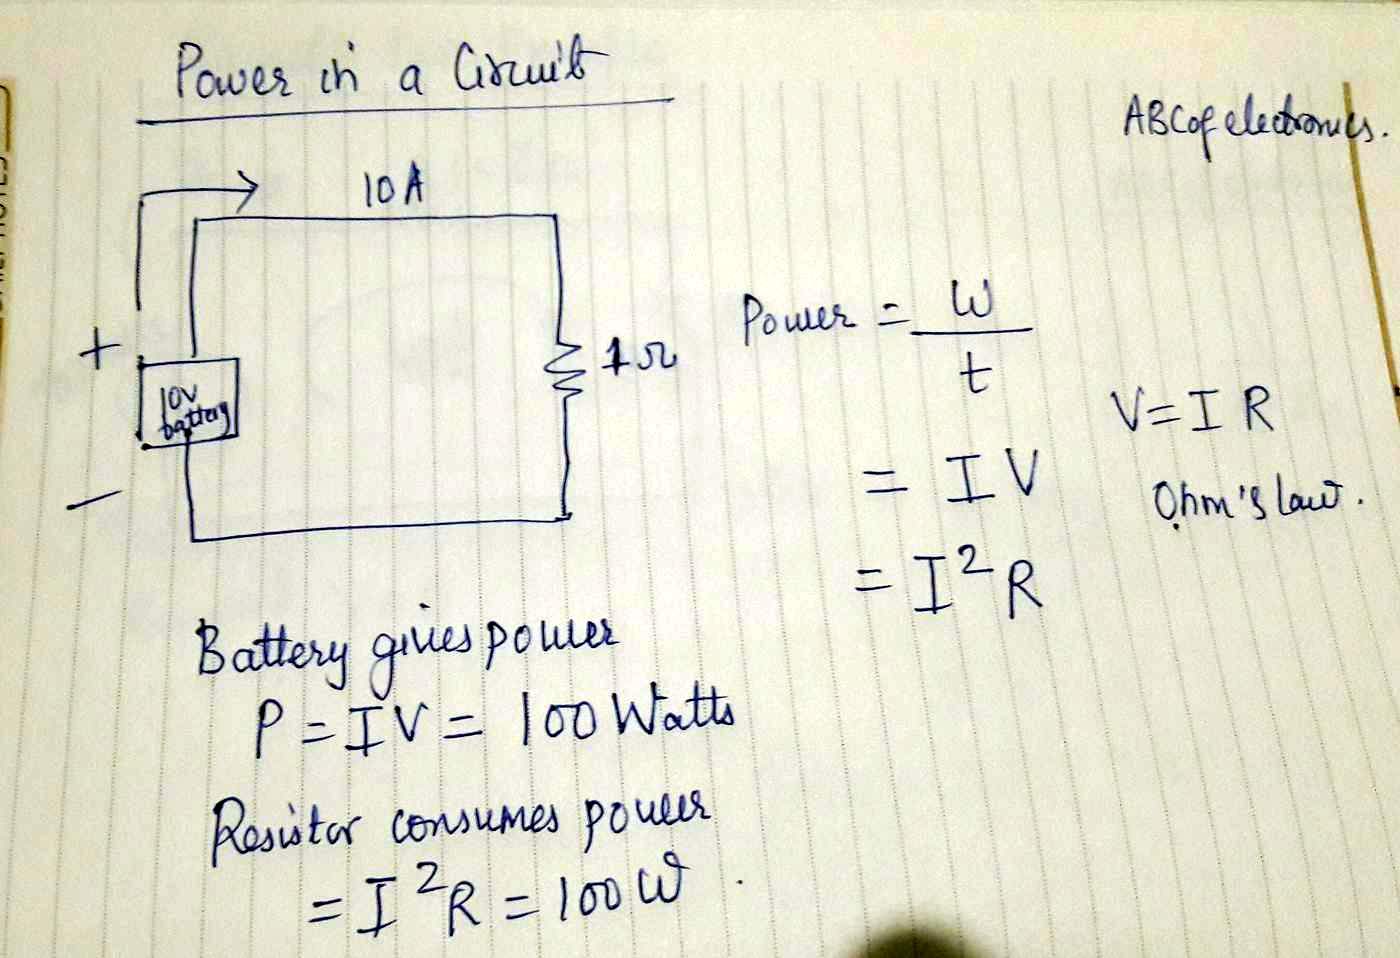 Power in a Circuit
ABC of electronics.
10 A
+
10V
battery
-
1Ω
Power = W
t
= I V
= I² R
V = I R
Ohm's law.
Battery gives power
P = I V = 100 Watts
Resistor consumes power
= I² R = 100 W .